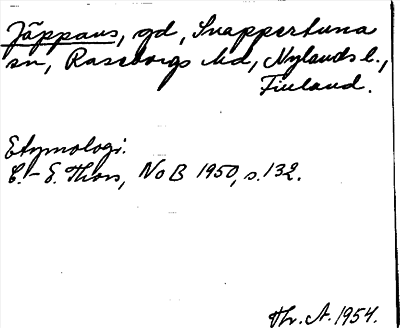 Jäppans, gd, Snappertuna
sn, Raseborgs hd, Nylands l.,
Finland.
Etymologi:
C.-E. Thors, NoB 1950, s. 132.
Th. A. 1954.